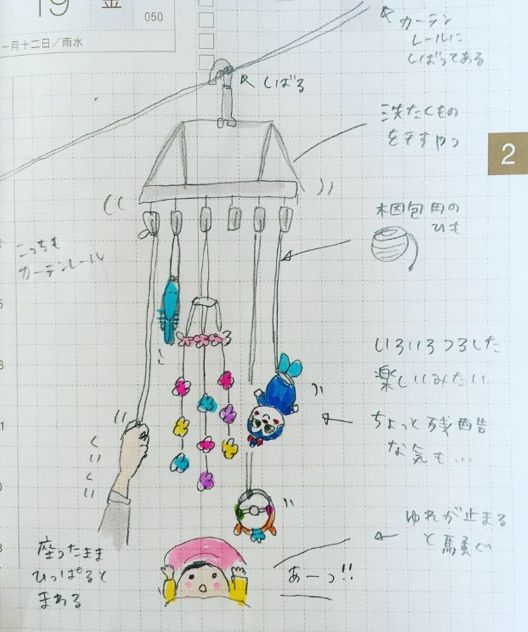 19 金
050
一月十二日／雨水
カーテン
レールに
しばってある
しばる
洗たくもの
をほすやつ
2
梱包用の
ひも
こっちも
カーテンレール
いろいろつるした
楽しいみたい
ちょっと残酷
な気も…
くいくい
ゆれが止まる
と騒ぐ
座ったまま
ひっぱると
まわる
あーっ!!